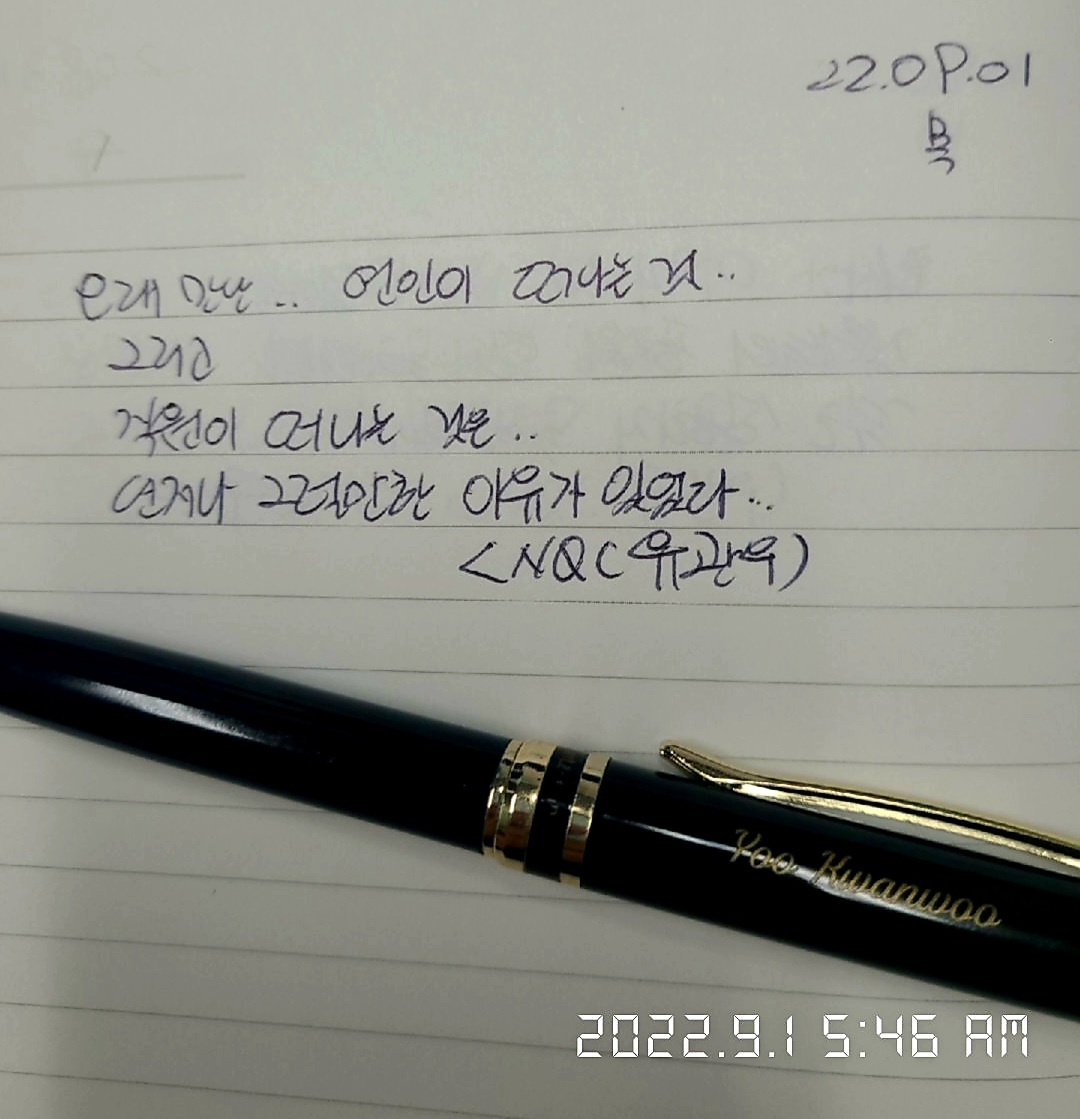 22.09.01
목
오래 만난.. 연인이 떠나는 것..
그리고
직원이 떠나는 것은..
언제나 그럴만한 이유가 있었다...
<NQC(유관우)
Yoo Kwanwoo
2022.9.1 5:46 AM